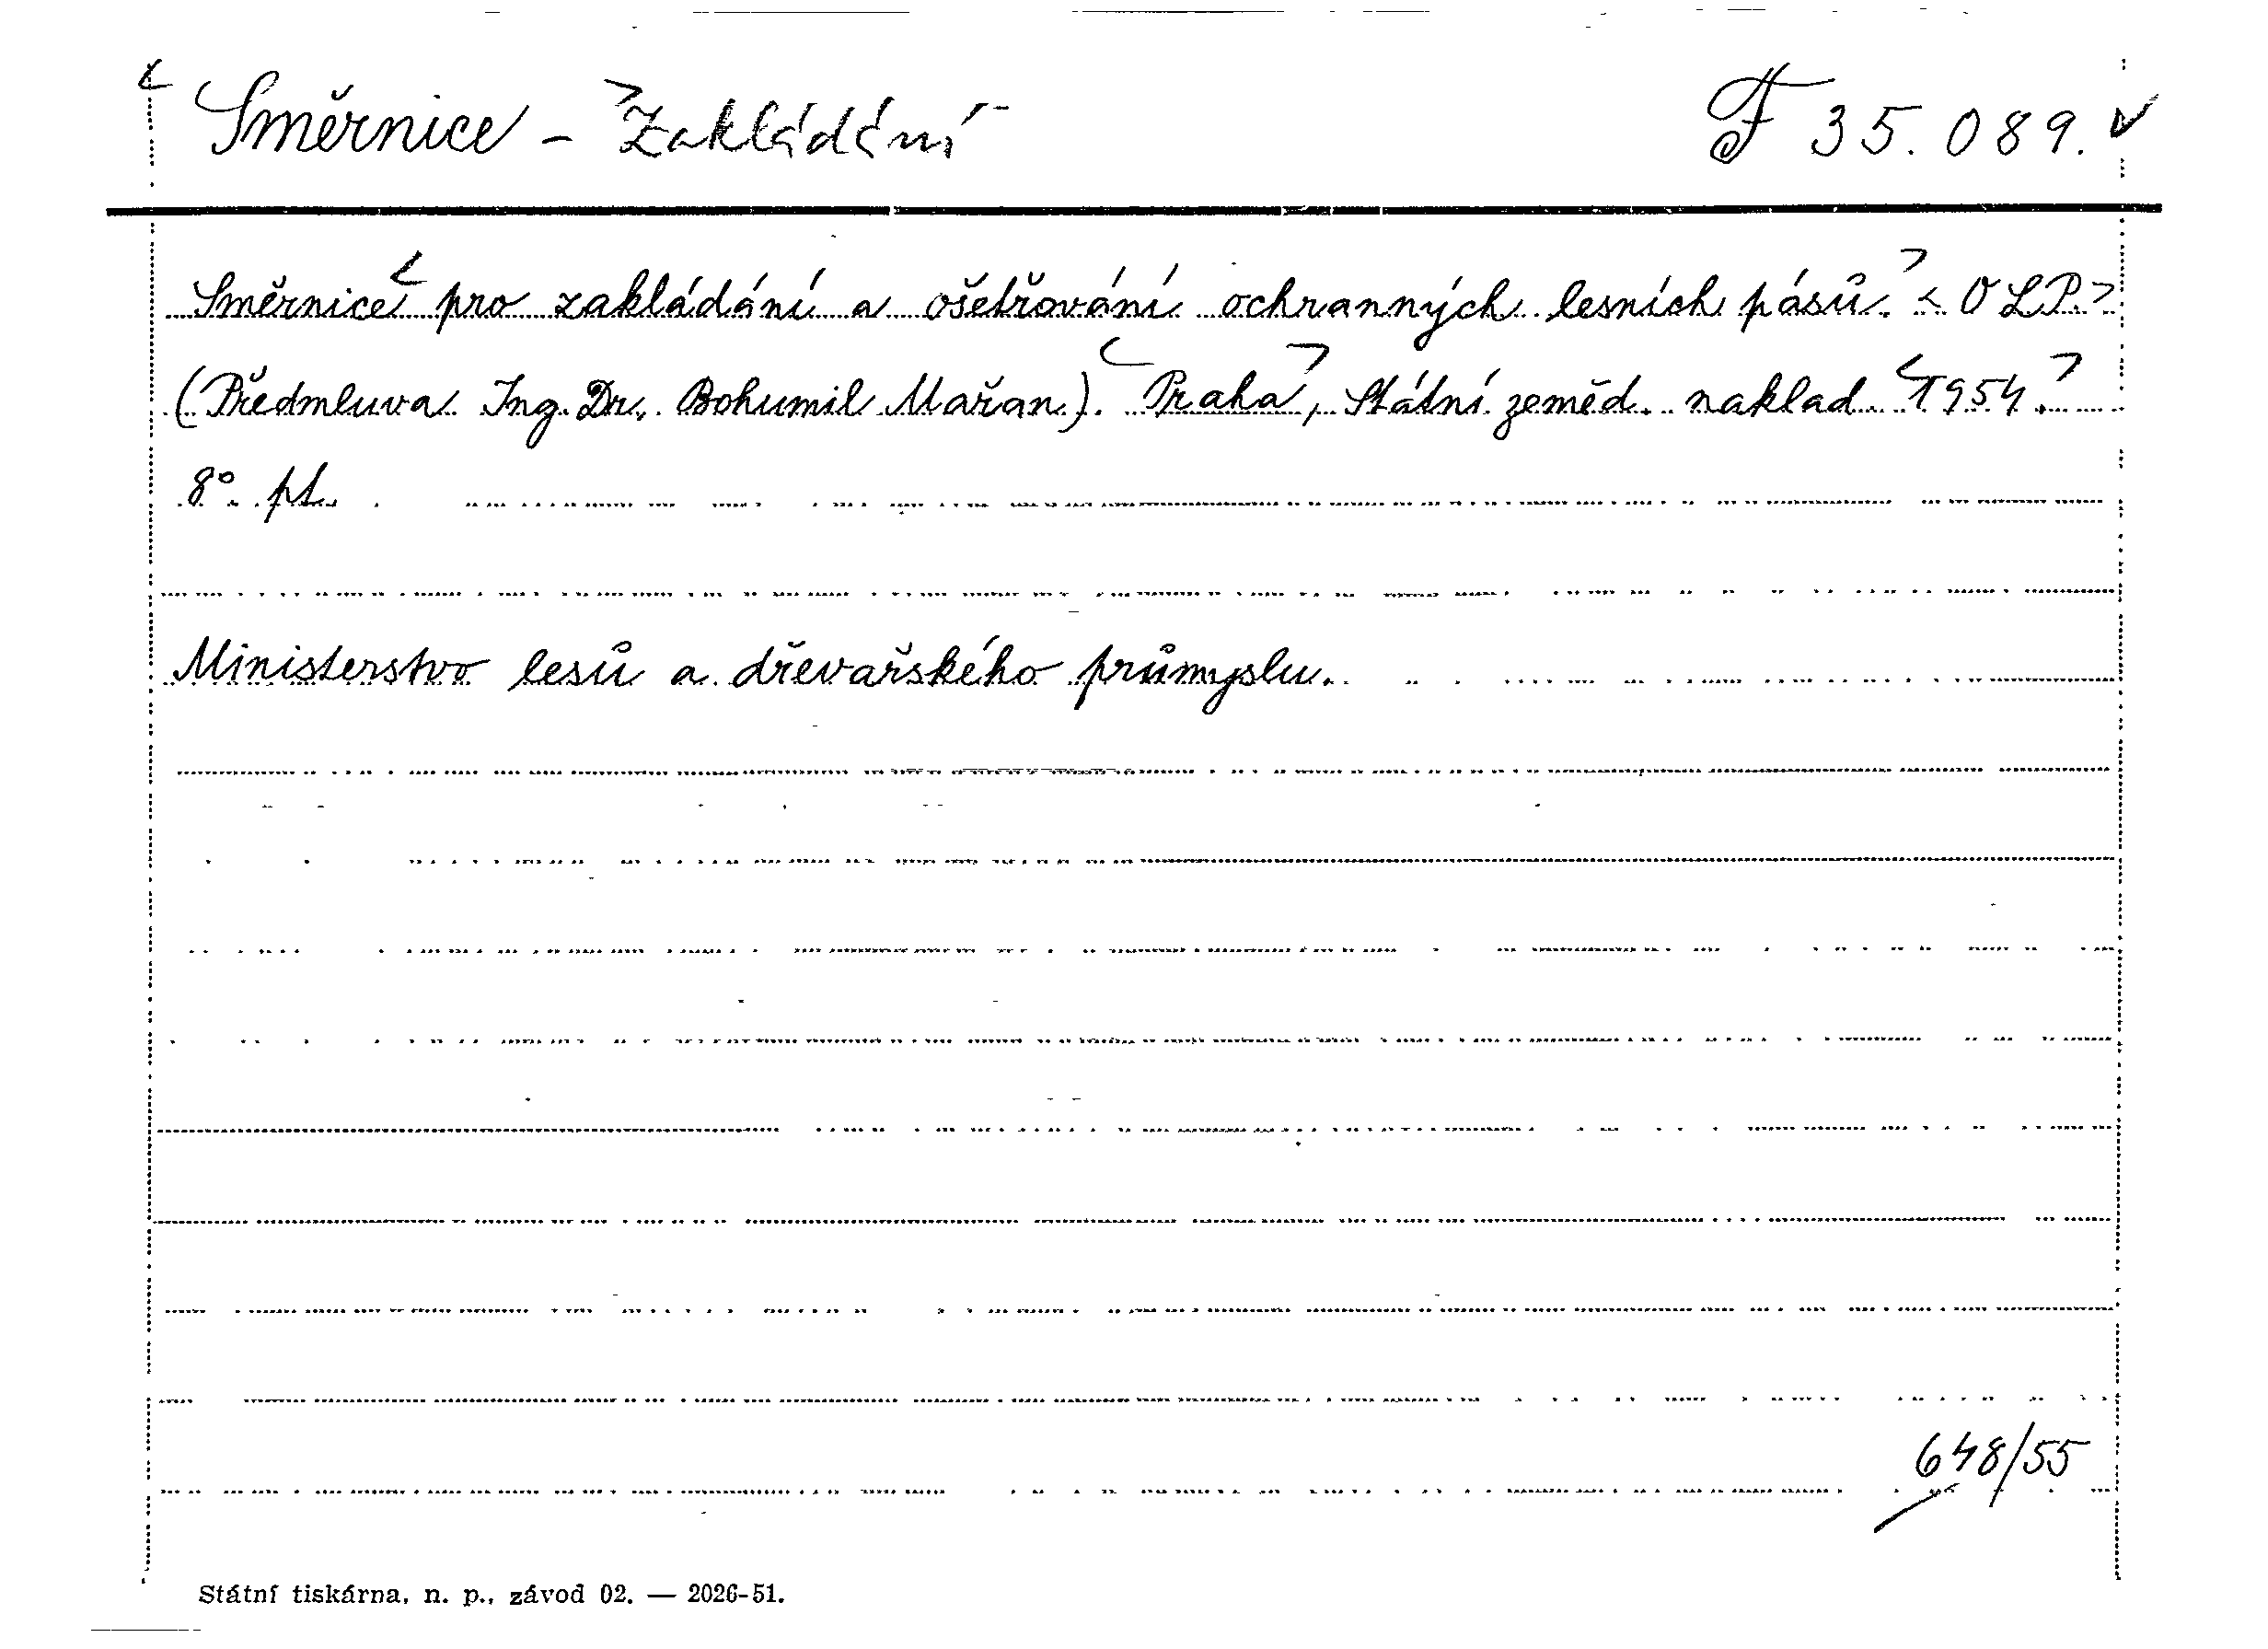 Směrnice - Zakládání F 35.089.
Směrnice pro zakládání a ošetřování ochranných lesních pásů. < OLP. >
(Předmluva Ing. Dr. Bohumil Mařan). Praha, Státní zeměd. naklad. 1954.
8°. pt.
Ministerstvo lesů a dřevařského průmyslu.
648/55
Státní tiskárna, n. p., závod 02. — 2026-51.